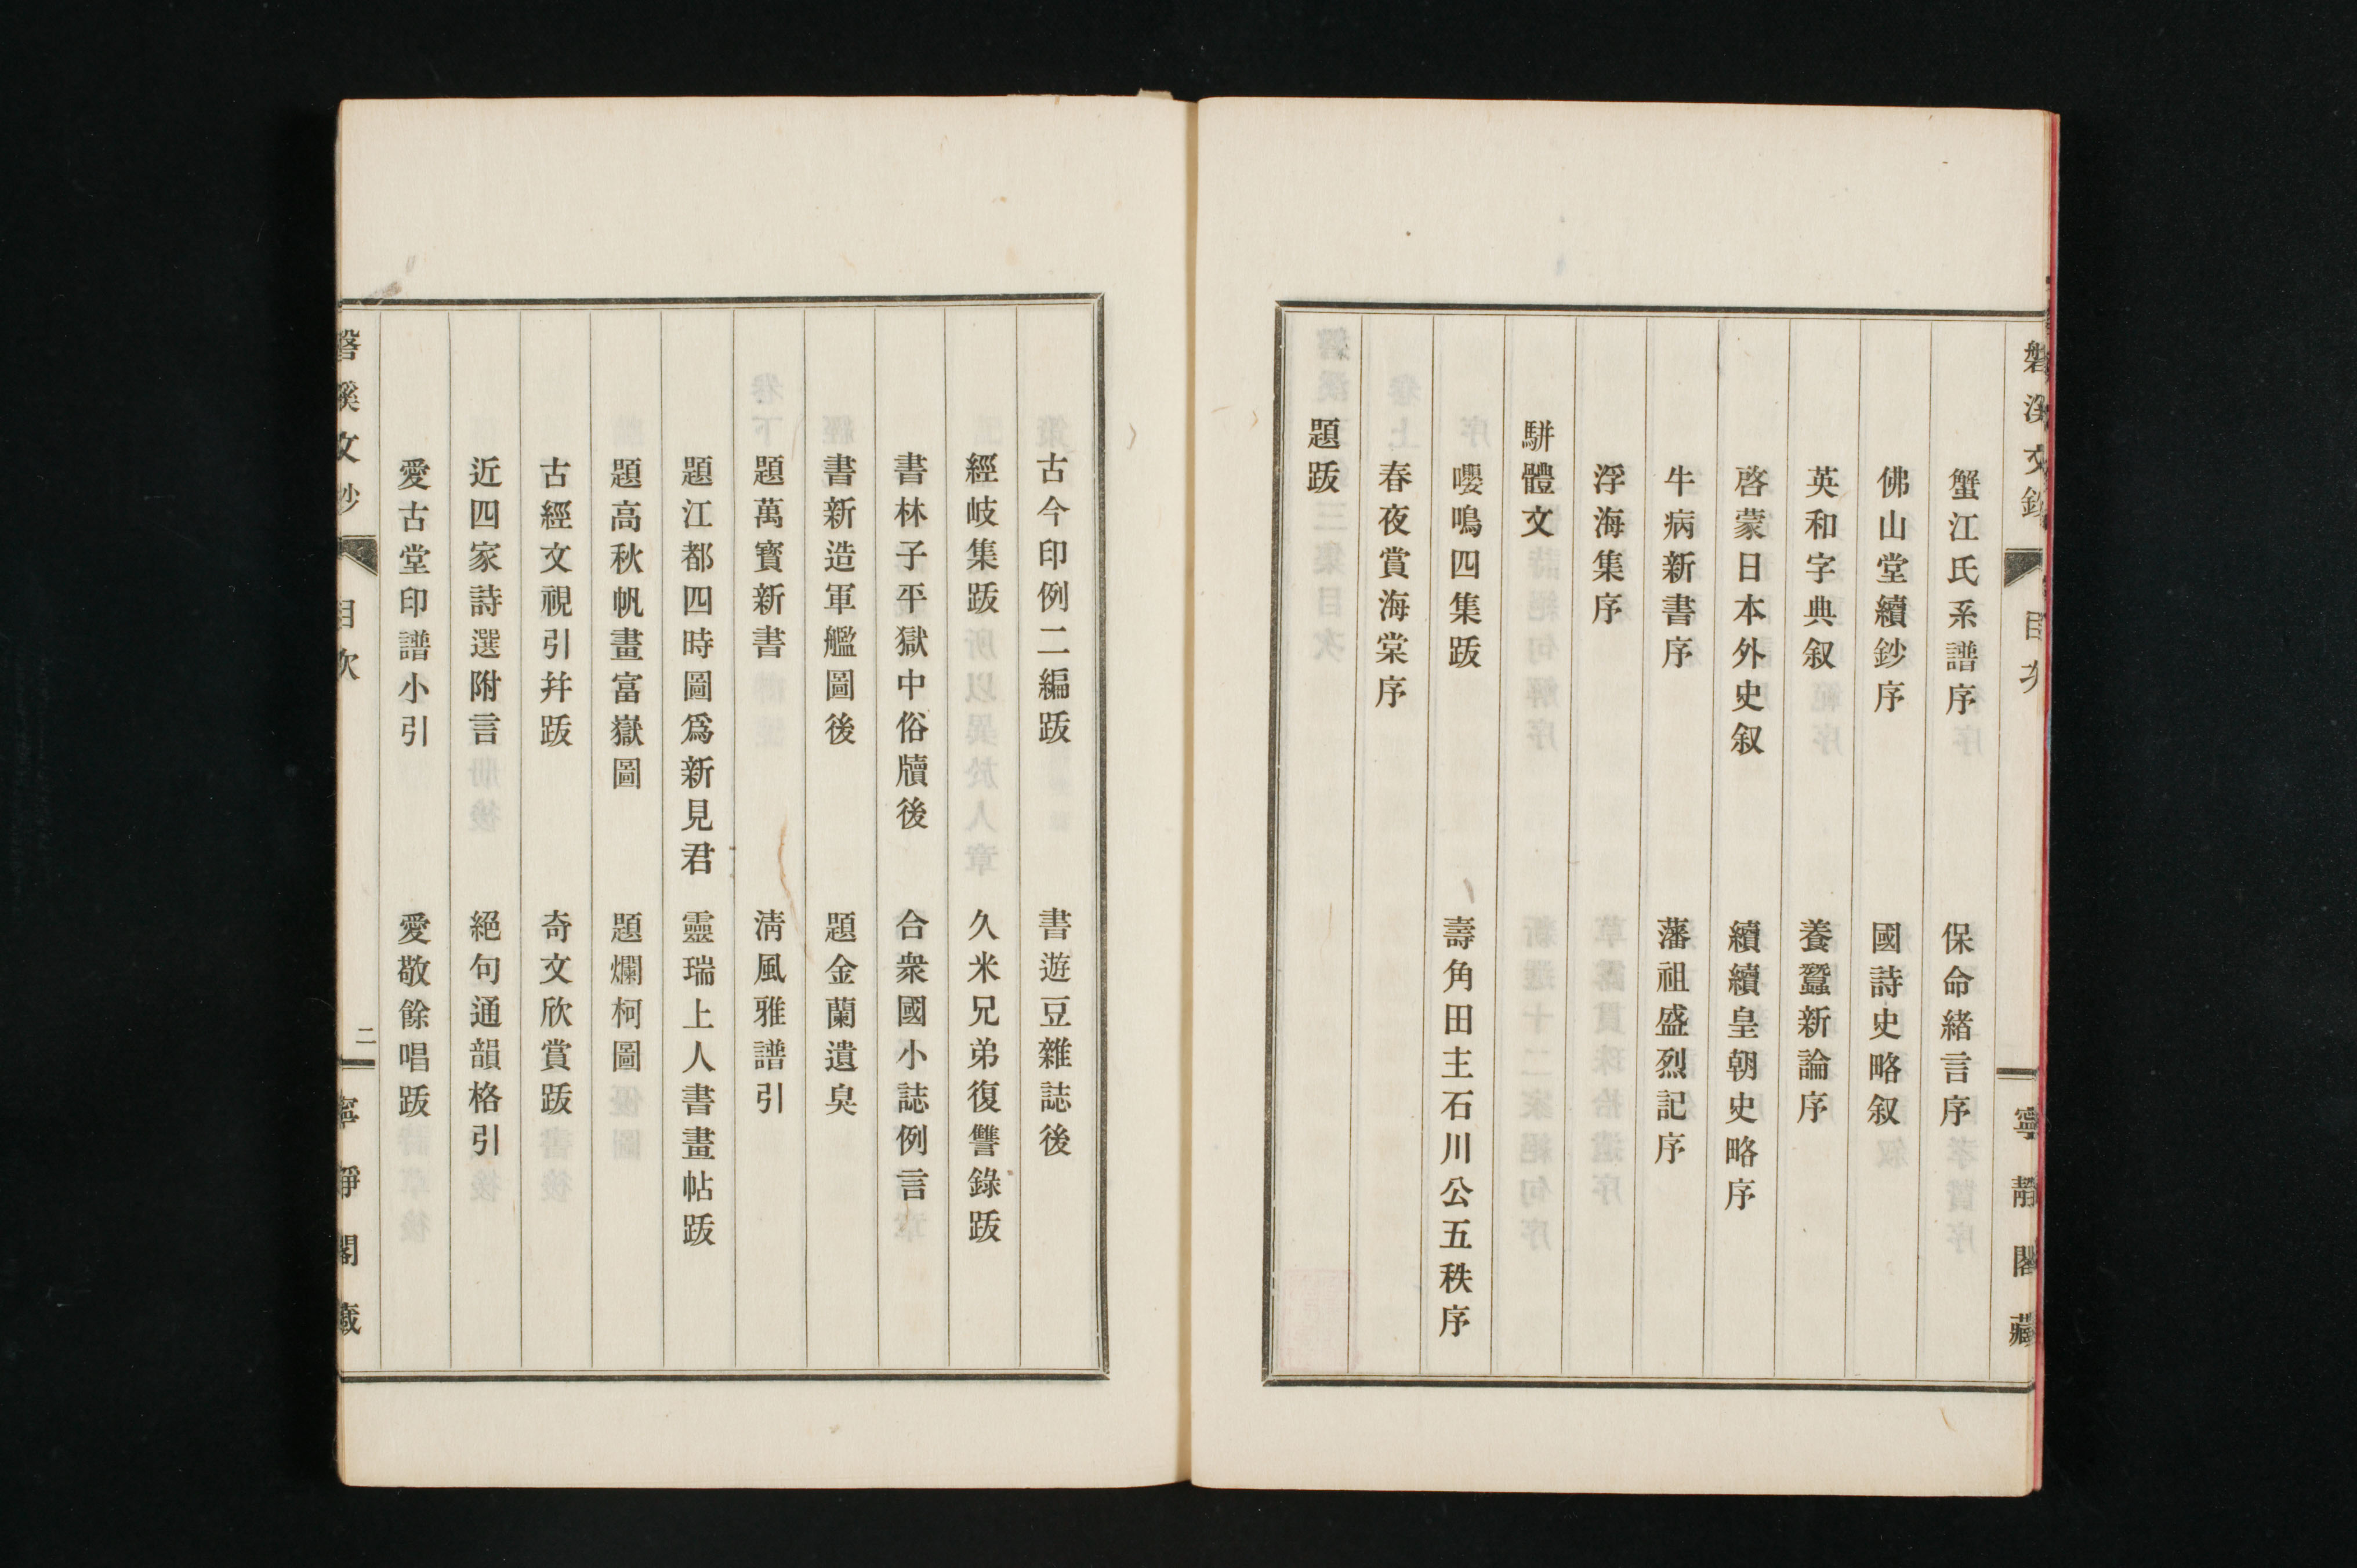 磐溪文鈔
目次
寧靜閣藏
蟹江氏系譜序　保命緒言序
佛山堂續鈔序　國詩史略叙
英和字典叙　養蠶新論序
啓蒙日本外史叙　續續皇朝史略序
牛病新書序　藩祖盛烈記序
浮海集序
駢體文
嚶鳴四集跋　壽角田主石川公五秩序
春夜賞海棠序
題跋
古今印例二編跋　書遊豆雜誌後
經岐集跋　久米兄弟復讐錄跋
書林子平獄中俗牘後　合衆國小誌例言
書新造軍艦圖後　題金蘭遺臭
題萬寳新書　淸風雅譜引
題江都四時圖爲新見君　靈瑞上人書畫帖跋
題高秋帆畫富嶽圖　題爛柯圖
古經文視引幷跋　奇文欣賞跋
近四家詩選附言　絕句通韻格引
愛古堂印譜小引　愛敬餘唱跋
磐溪文鈔
目次
二
寧靜閣藏